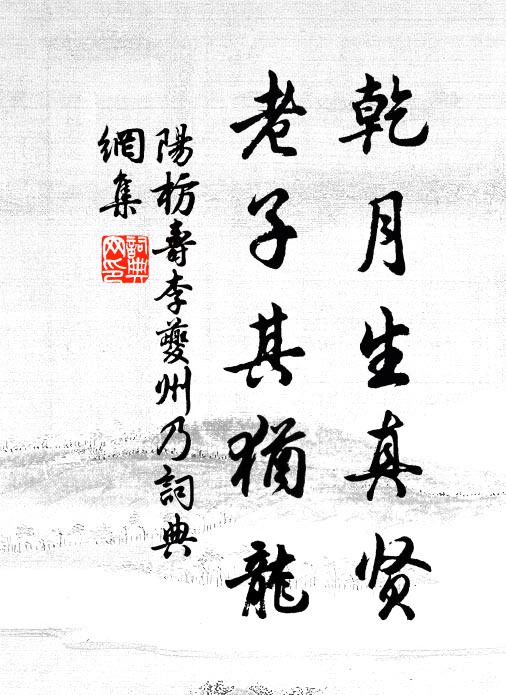 乾月生真贤
老子其猶龍
陽枋壽李夔州乃詞典
網集
詞典
网印